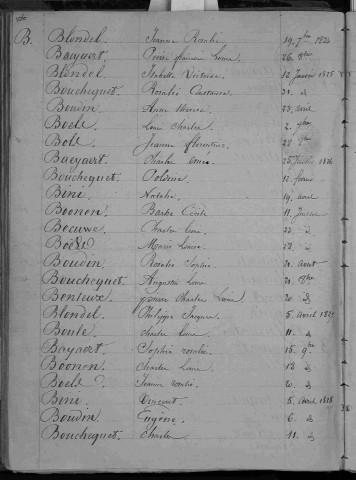 B. Blondel. Jeanne Rosalie 19. 7bre 1824
Bayaert Louise 26. 8bre
Blondel. Isabelle Victoire 12 Janvier 1825
Bouchequet. Rosalie 21. d
Boudin. Anne 23. avril
Boele. Louis Charles 2.
Bolo. Jeanne florentine 28
Bayaert. Charles 25 Juillet 1826
Bouchequet. Colonie 12
Bini. Natalie 19. avril
Boonon. Barbe Cécile 11. Juillet
Becuwe. Charles Louis 22 d
Boële. Marie Louise 23. d
Boudin. Rosalie Sophie 20. aout
Bouchequet. Augustin Louis 20. 8bre
Bonteux. pierre Charles Louis 20 d
Blondel. Philippe Jacques 5. avril 1827
Boule. Charles Louis 11. d
Bayaert. Sophie rosalie 15. 9bre
Boonon. Charles Louis 18 d
Boeld. Jeanne rosalie 20. d
Bini. Vincent 5. avril 1828
Boudin. Eugène. 6. d
Bouchequet. Charles 11. d